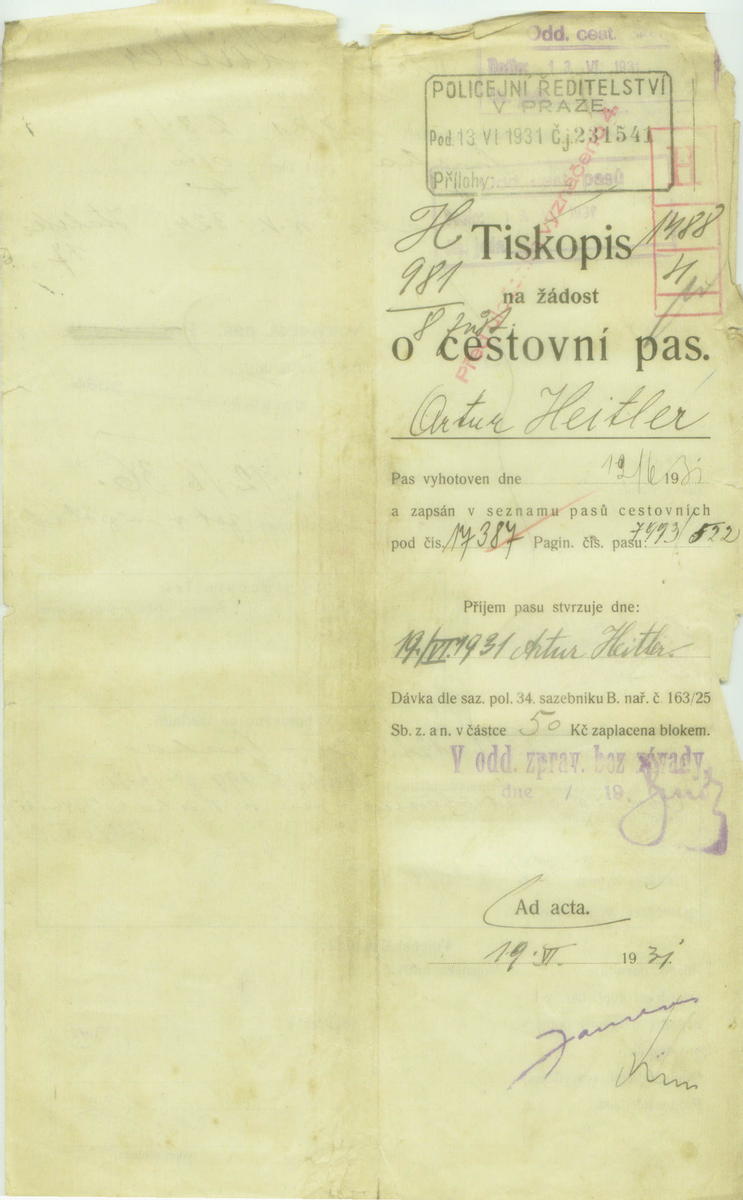 Odd. cest.
13 VI 1931
POLICEJNÍ ŘEDITELSTVÍ
V PRAZE
Pod. 13 VI 1931 Č.j. 231541
Přílohy:
H
981
8
H
1488
4
Tiskopis
na žádost
o cestovní pas.
Artur Heitler
Pas vyhotoven dne 19/6 1931
a zapsán v seznamu pasů cestovních
pod čís. 17387 Pagin. čís. pasu: 7993/522
Příjem pasu stvrzuje dne:
19./VI.1931 Artur Heitler
Dávka dle saz. pol. 34. sazebníku B. nař. č 163/25
Sb. z. a n. v částce 50 Kč zaplacena blokem.
V odd. zprav. bez závady,
dne / 19.
Ad acta.
19.VI. 1931.